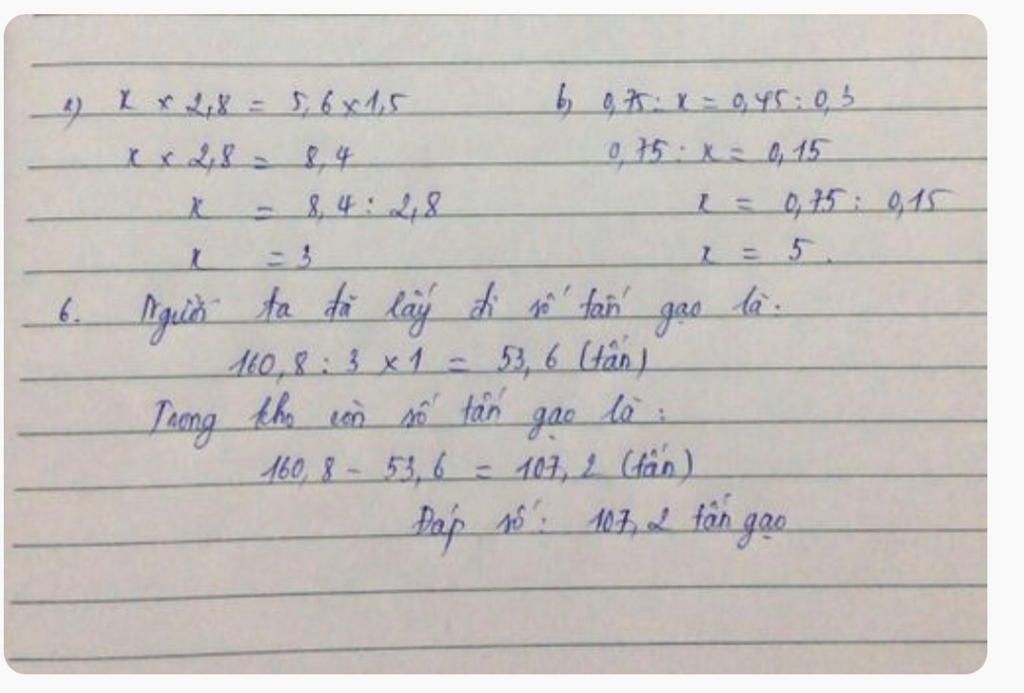 a) x × 2,8 = 5,6 × 1,5
x × 2,8 = 8,4
x = 8,4 : 2,8
x = 3
b) 0,75 : x = 0,45 : 0,3
0,75 : x = 0,15
x = 0,75 : 0,15
x = 5.
6. Người ta đã lấy đi số tấn gạo là:
160,8 : 3 × 1 = 53,6 (tấn)
Trong kho còn số tấn gạo là:
160,8 - 53,6 = 107,2 (tấn)
Đáp số: 107,2 tấn gạo